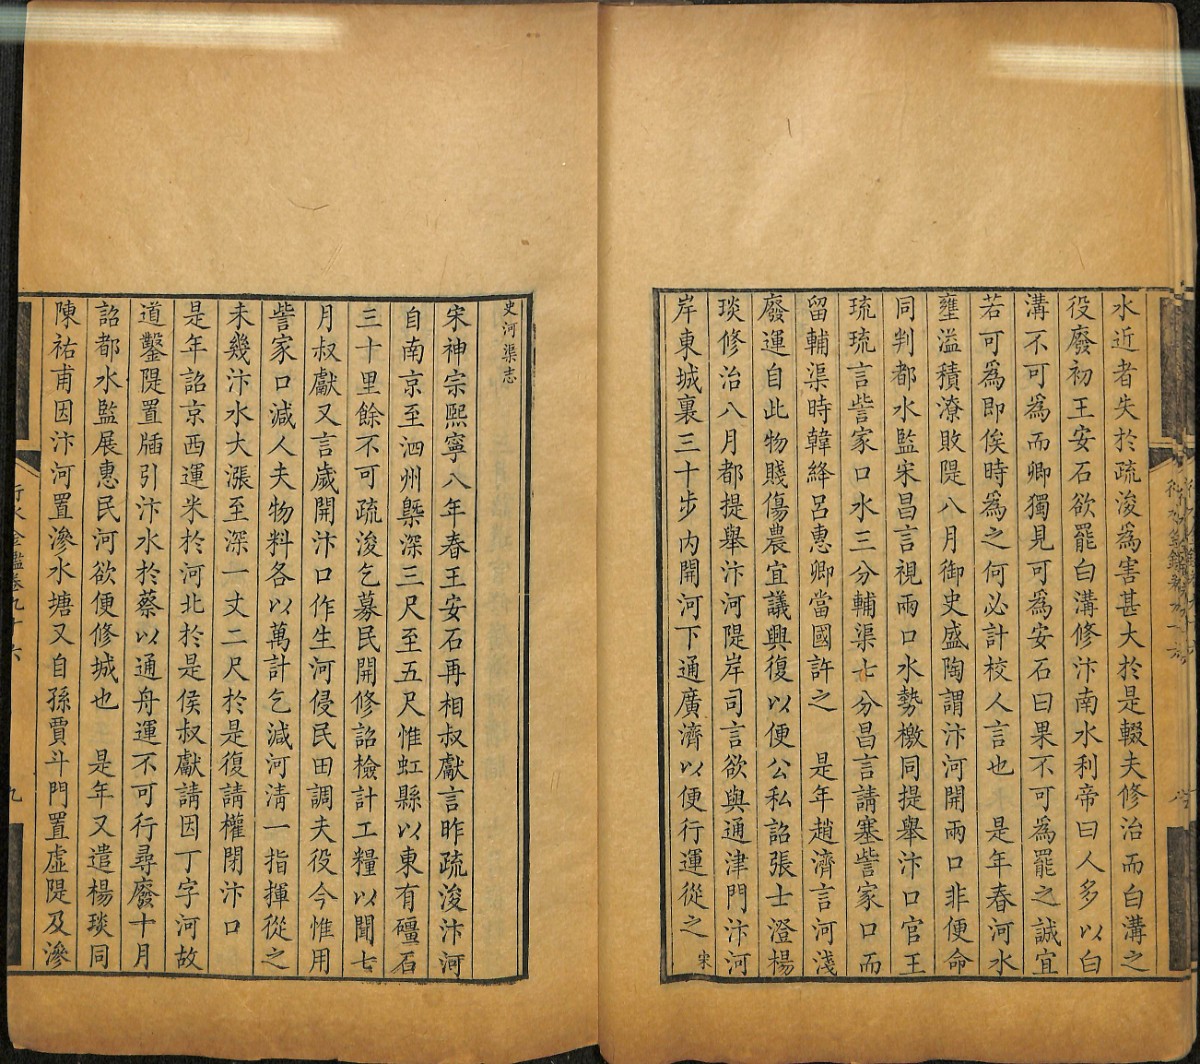 水近者失於疏浚為害甚大於是輟夫修治而白溝之
役廢初王安石欲罷白溝修汴南水利帝曰人多以白
溝不可為而卿獨見可為安石曰果不可為罷之誠宜
若可為即俟時為之何必計校人言也　是年春河水
壅溢積潦敗隄八月御史盛陶謂汴河開兩口非便命
同判都水監宋昌言視兩口水勢檄同提舉汴口官王
琉琉言訾家口水三分輔渠七分昌言請塞訾家口而
留輔渠時韓絳呂惠卿當國許之　是年趙濟言河淺
廢運自此物賤傷農宜議興復以便公私詔張士澄楊
琰修治八月都提舉汴河隄岸司言欲與通津門汴河
岸東城裏三十步内開河下通廣濟以便行運從之宋
史河渠志
宋神宗熙寧八年春王安石再相叔獻言昨疏浚汴河
自南京至泗州槩深三尺至五尺惟虹縣以東有礓石
三十里餘不可疏浚乞募民開修詔檢計工糧以聞七
月叔獻又言歲開汴口作生河侵民田調夫役今惟用
訾家口減人夫物料各以萬計乞減河清一指揮從之
未幾汴水大漲至深一丈二尺於是復請權閉汴口
是年詔京西運米於河北於是侯叔獻請因丁字河故
道鑿隄置牐引汴水於蔡以通舟運不可行尋廢十月
詔都水監展惠民河欲便修城也　是年又遣楊琰同
陳祐甫因汴河置滲水塘又自孫賈斗門置虛隄及滲
行水金鑑卷九十六
九